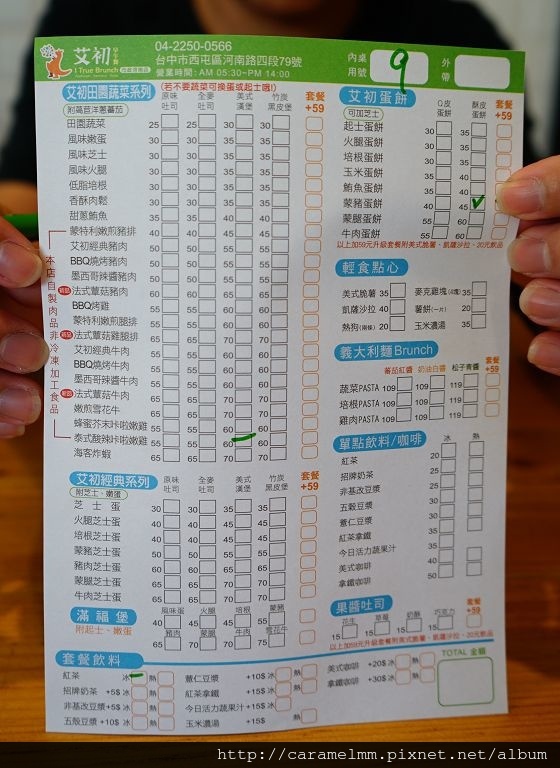 艾初 早午餐
1 True Brunch
04-2250-0566
台中市西屯區河南路四段79號
營業時間: AM 05:30~PM 14:00
內桌用號 9 外帶
(若不要蔬菜可換蛋或起士哦!)
艾初田園蔬菜系列 原味吐司 全麥吐司 美式漢堡 竹炭黑皮堡 套餐+59
田園蔬菜 25 25 30 30
風味嫩蛋 30 30 35 35
風味芝士 30 30 35 35
風味火腿 30 30 35 35
低脂培根 30 30 35 35
香酥肉鬆 30 30 35 35
甜蔥鮪魚 35 35 40 40
本店自製肉品非冷凍加工食品
蒙特利嫩煎豬排
艾初經典豬肉
BBQ燒烤豬肉
墨西哥辣醬豬肉
法式蕈菇豬肉
BBQ烤雞
蒙特利嫩煎腿排
法式蕈菇雞腿排
艾初經典牛肉
BBQ燒烤牛肉
墨西哥辣醬牛肉
法式蕈菇牛肉
嫩煎雪花牛
蜂蜜芥末咔啦嫩雞
泰式酸辣咔啦嫩雞
海客炸蝦
艾初經典系列 原味吐司 全麥吐司 美式漢堡 竹炭黑皮堡 套餐+59
附芝士、嫩蛋
芝士蛋 30 30 35 35
火腿芝士蛋 40 40 45 45
培根芝士蛋 40 40 45 45
蒙豬芝士蛋 50 50 55 55
豬肉芝士蛋
蒙腿芝士蛋 65 65 70 70
牛肉芝士蛋 65 65 70 70
滿福堡 風味蛋 火腿 培根 蒙豬
附起士、嫩蛋 豬肉 蒙腿 牛肉 雪花牛
套餐飲料
紅茶 冰 熱
招牌奶茶 +5$ 冰 熱
非基改豆漿+5$ 冰 熱
五穀豆漿 +10$ 冰 熱
薏仁豆漿 +10$ 冰 熱
紅茶拿鐵 +15$ 冰 熱
今日活力蔬果汁 +15$ 冰
玉米濃湯 +15$ 熱
美式咖啡 +20$ 冰 熱
拿鐵咖啡 +30$ 冰 熱
TOTAL 金額
艾初蛋餅 Q皮蛋餅 酥皮蛋餅 套餐+59
可加芝士
起士蛋餅 30 35
火腿蛋餅 30 35
培根蛋餅 30 35
玉米蛋餅 30 35
鮪魚蛋餅 35 40
蒙豬蛋餅 40 45 ✓
蒙腿蛋餅 55 60
牛肉蛋餅 55 60
以上加59元升級套餐附美式脆薯、凱薩沙拉、20元飲品
輕食點心
美式脆薯 35 麥克雞塊(4塊) 35
凱薩沙拉 40 薯餅(一片) 20
熱狗(兩條) 20 玉米濃湯 35
義大利麵Brunch
蕃茄紅醬 奶油白醬 松子青醬 套餐+59
蔬菜PASTA 109 109 119
培根PASTA 109 109 119
雞肉PASTA 109 109 119
單點飲料/咖啡 冰 熱
紅茶 20
招牌奶茶 25
非基改豆漿 25
五穀豆漿 30
薏仁豆漿 30
紅茶拿鐵 35
今日活力蔬果汁 35
美式咖啡 40
拿鐵咖啡 50
果醬吐司 套餐+59
花生 15 草莓 15 奶酥 15 巧克力 15
以上加59元升級套餐附美式脆薯、凱薩沙拉、20元飲品
http://caramelmm.pixnet.net/album